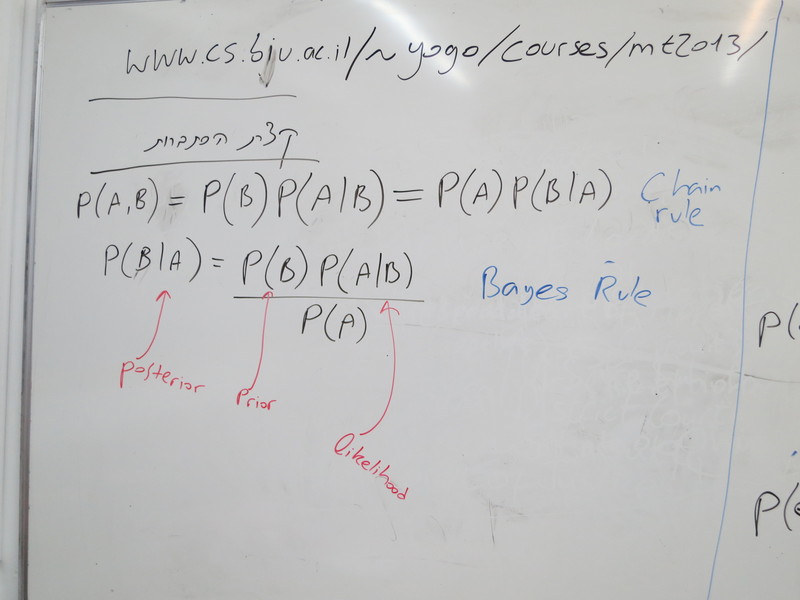 www.cs.biu.ac.il/~yogo/courses/mt2013/
קצת הסתברות
P(A,B) = P(B) P(A|B) = P(A) P(B|A) Chain rule
P(B|A) = P(B) P(A|B) Bayes Rule
P(A)
posterior
Prior
likelihood
P(
P(